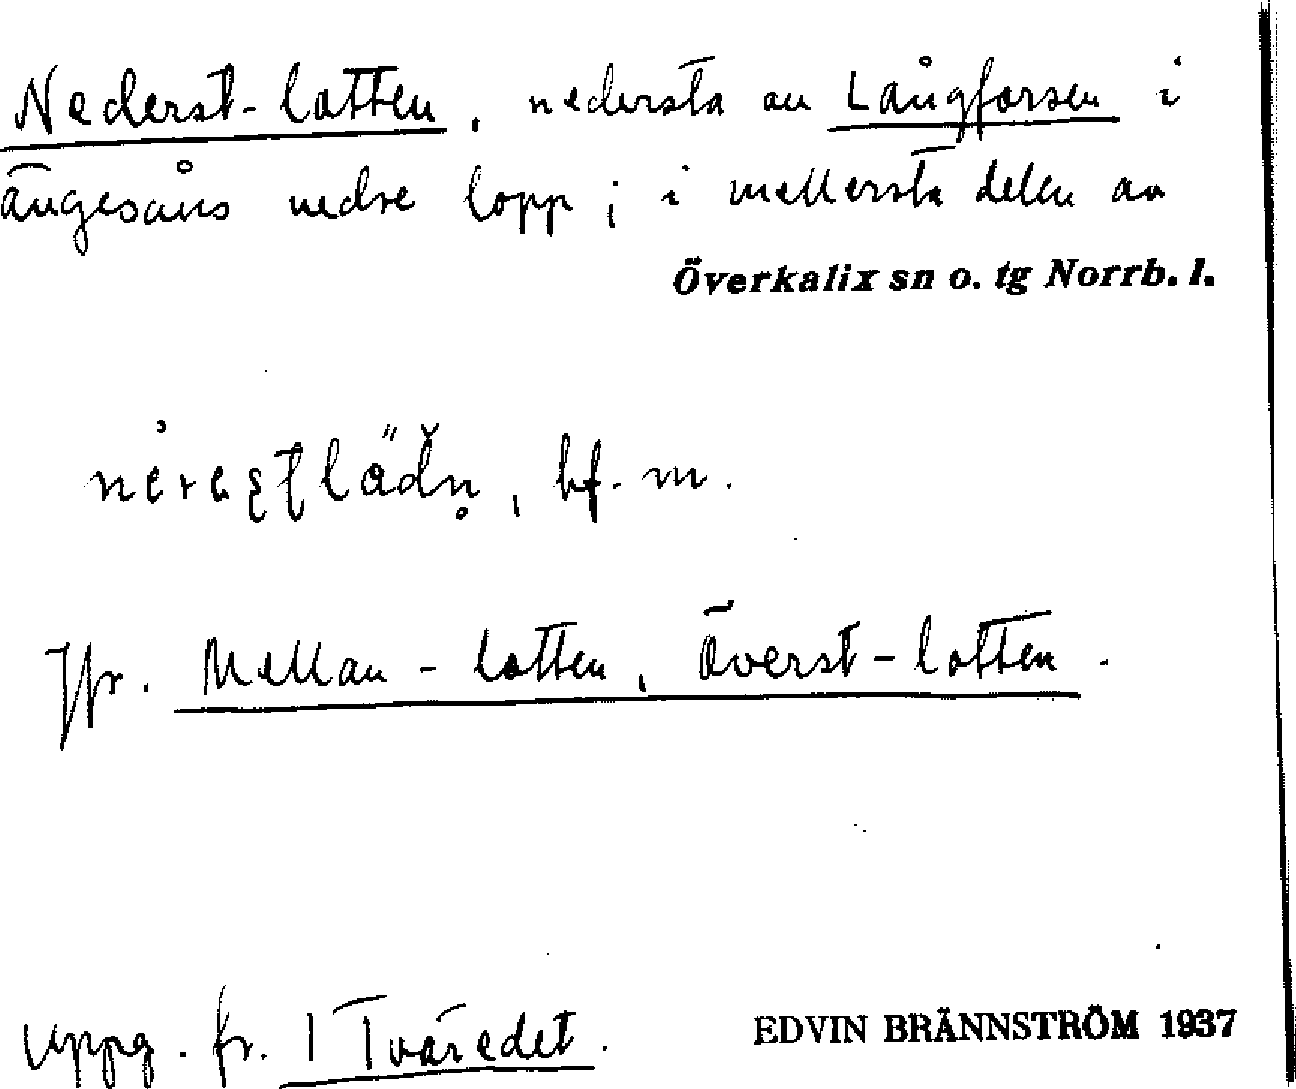 Nederst-lotten, nedersta av Långforsen i
ängesåns nedre lopp; i mellersta delen av
Överkalix sn o. tg Norrb. l.
bf. m.
Jfr. Mellan-lotten, Överst-lotten.
uppg. fr. 1 Tväredet.
EDVIN BRÄNNSTRÖM 1937